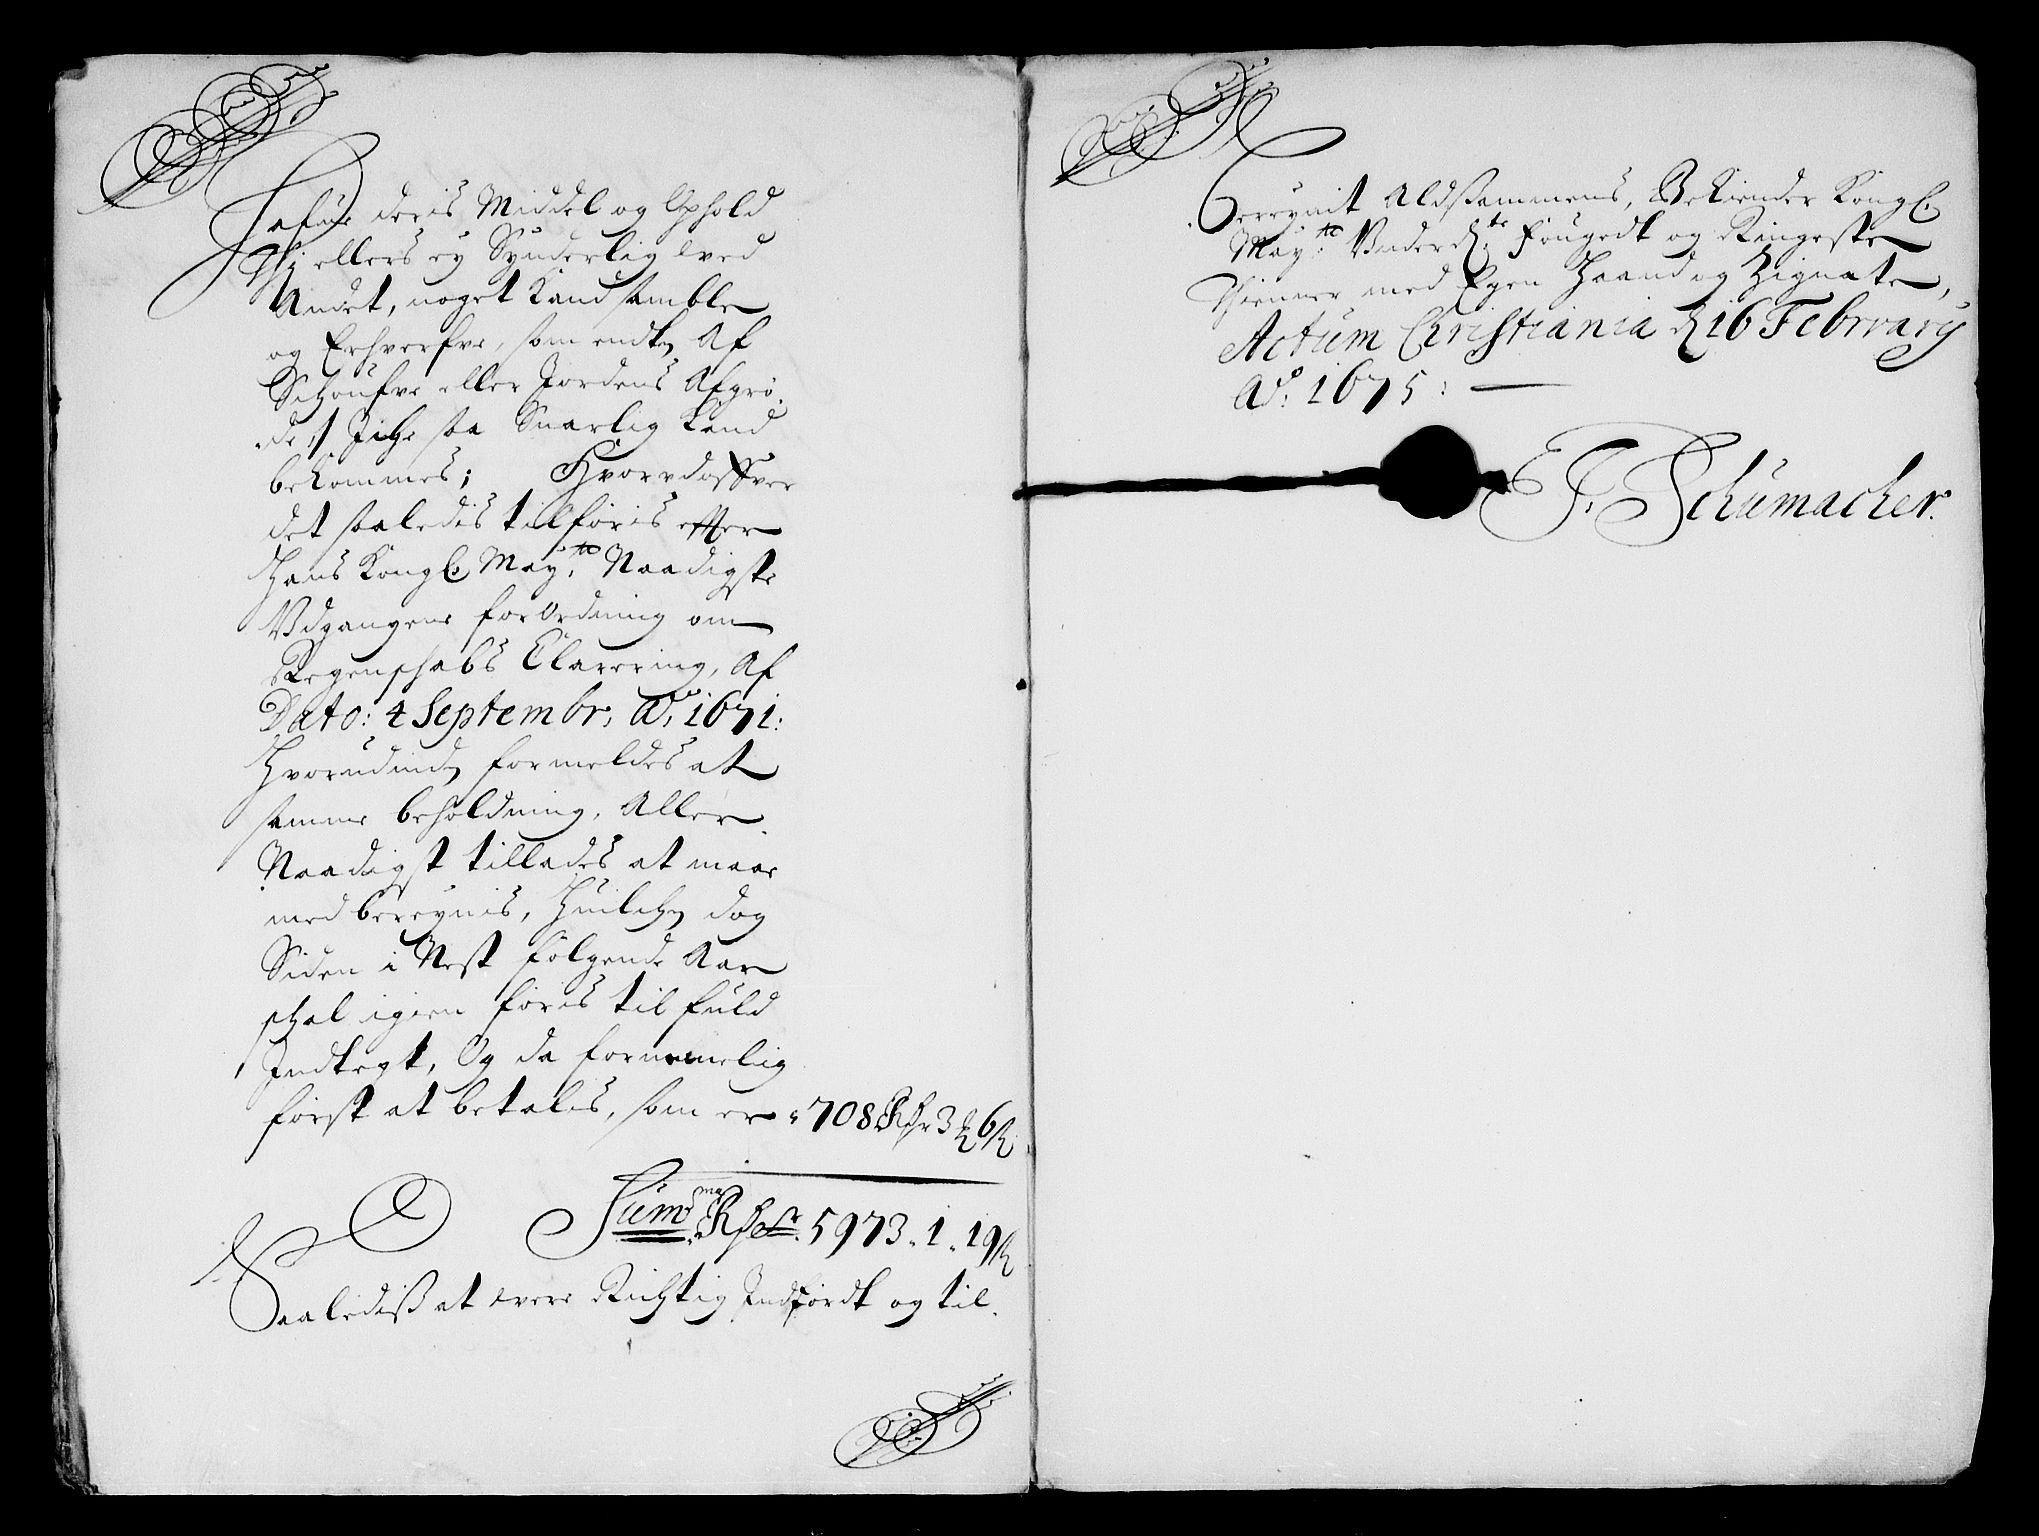 Hafue deris Middel og Ophold
Vj ellers ey Synderlig wed
Andet, noget kand samble
og Erhverfve, som endten Af
Schoufve eller Jordens Afgrø-
de, saa Snarlig kand
bekommes; Hvorvdoffver
det saaledis tilføris effter
Hans Kongl. May.te Naadigste
Vdgangene forordning om
Regenschabs Clarering, Af
Dato: 4 Septembr, Ao. 1671:
Hvorudinden formeldes at
samme beholdning, Aller
Naadigst tillades at maae
medberegnis, Huilchen dog
Siden i Nest følgende Aar
schal igien føris til fuld
Indtegt, Og da fornemmelig
først at betales, som er 708 Rdr 3 ₰ 6 ß
Summa Rixdlr. 5973. 1. 19 ß
Saalediß at were Richtig Indførdt og til
beregnit Aldsammens, Bekiender Kongl.
May.te Vnderd.te fougedt og Ringeste
Thienner med Egen Haand og Zignete,
Actum Christiania d 16 Februarij
Ao: 1675:
F. Schumacher.